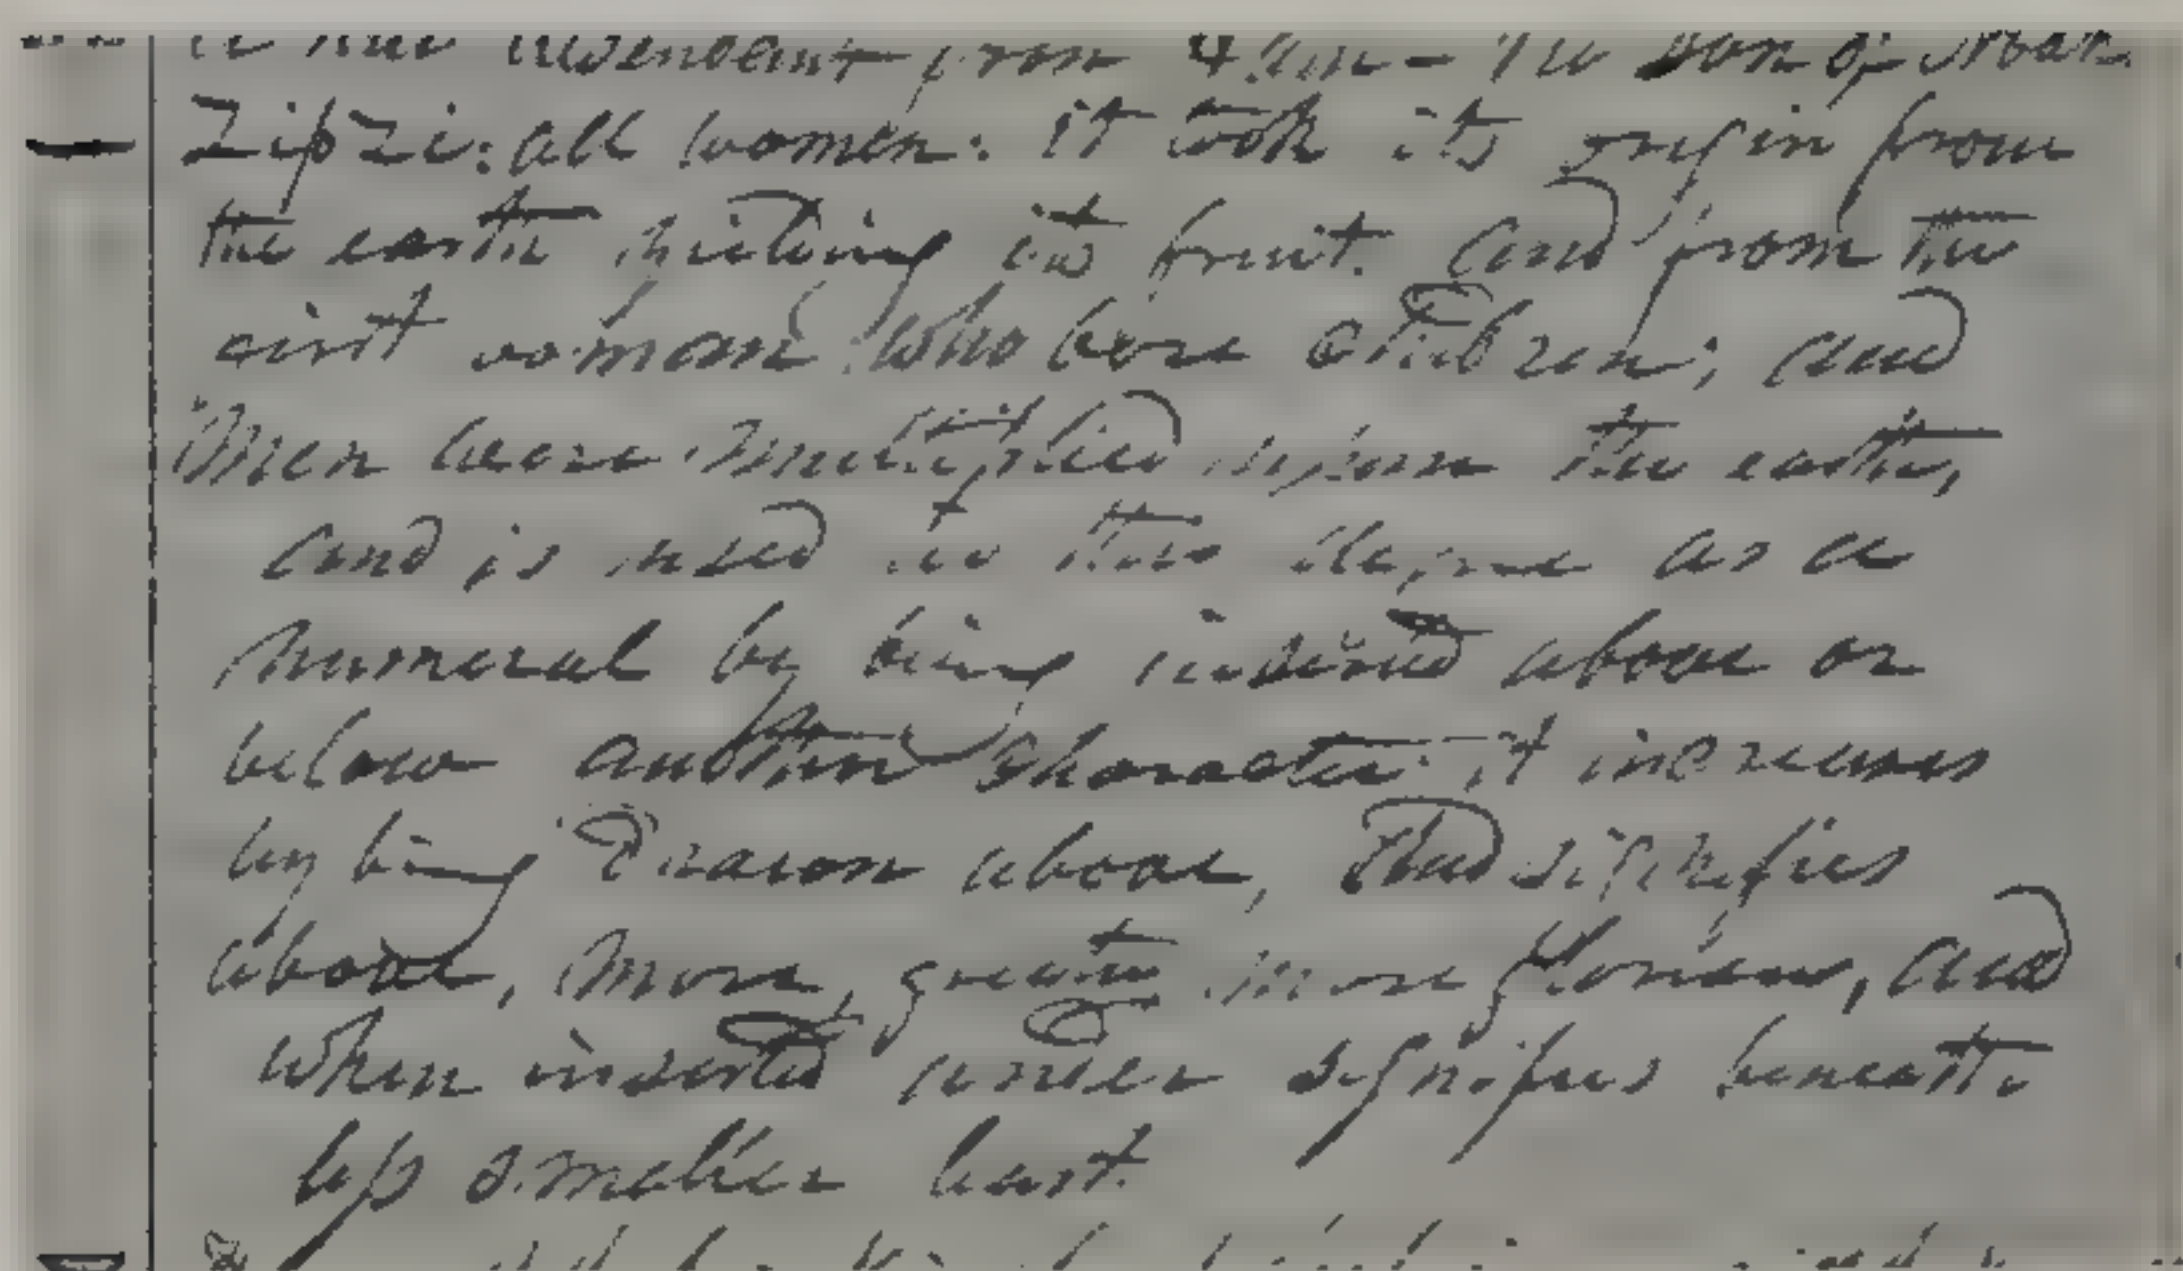 descendant from Ham - The son of Noah
Zip Zi: all women: it took its origin from
the earth yielding its fruit. And from the
first woman who bore children; and
men were multiplied upon the earth,
and is used in this degree as a
numeral by being inserted above or
below another character: it increases
by being drawn above, thus signifies
above, more, greater more glorious, and
when inserted under signifies beneath
less smaller least.